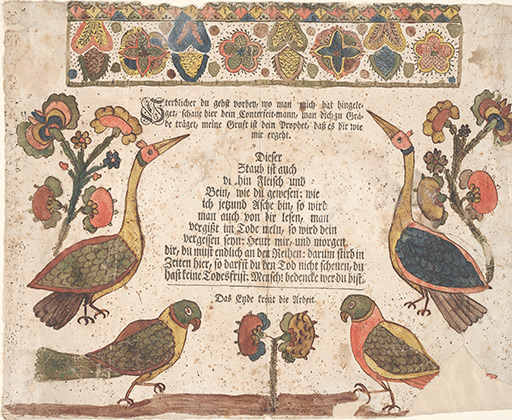 Sterblicher du gehst vorbey, wo man mich hat hingele-
get, schaue hier dein Conterfeit-mann, man dich zu Gra-
be träget, meine Gruft ist dein Prophet, daß es dir wie
mir ergeht.
Dieser
Staub ist auch
hin Fleisch und
Bein, wie du gewesen: wie
ich jetzund Asche bin, so wird
man auch von dir lesen, man
vergißt im Tode mein, so wird dein
vergessen seyn: Heute mir, und morgen
dir, du must endlich an den Reihen: darum stirb in
Zeiten hier, so darfst du den Tod nicht scheuen, du
hast keine Todesfrist: Mensch! bedencke wer du bist.
Das Ende krönt die Arbeit.